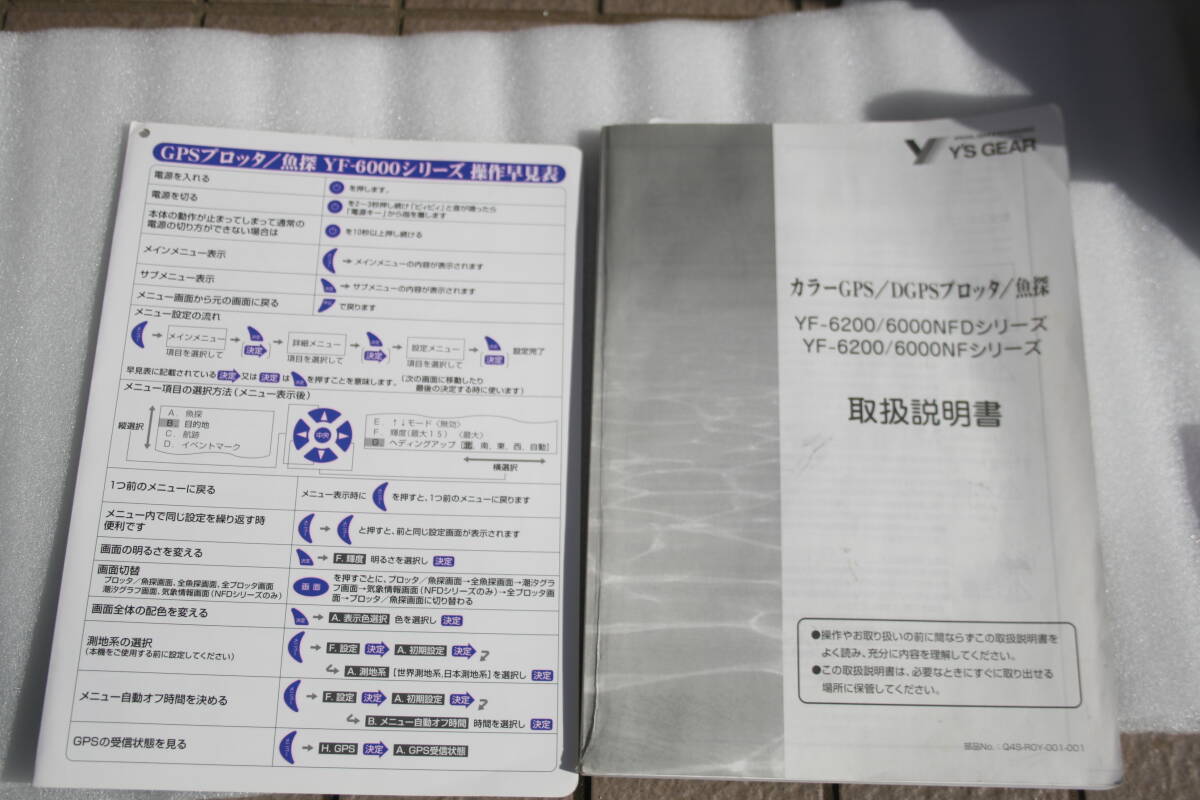 GPSプロッタ／魚探 YF-6000シリーズ 操作早見表
電源を入れる
を押します。
電源を切る
を2～3秒押し続け「ピィピィ」と音が鳴ったら
「電源キー」から指を離します
本体の動作が止まってしまって通常の
電源の切り方ができない場合は
を10秒以上押し続ける
メインメニュー表示
→ メインメニューの内容が表示されます
サブメニュー表示
→ サブメニューの内容が表示されます
メニュー画面から元の画面に戻る
で戻ります
メニュー設定の流れ
→ メインメニュー → 決定 → 詳細メニュー → 決定 → 設定メニュー → 決定 設定完了
項目を選択して 項目を選択して 項目を選択して
早見表に記載されている 決定 又は 決定 は を押すことを意味します。（次の画面に移動したり
最後の決定する時に使います）
メニュー項目の選択方法（メニュー表示後）
縦選択
A. 魚探
B. 目的地
C. 航跡
D. イベントマーク
中央
E. ↑↓モード〈無効〉
F. 輝度（最大１５） 〈最大〉
G. ヘディングアップ [北、南、東、西、自動]
横選択
1つ前のメニューに戻る
メニュー表示時に を押すと、1つ前のメニューに戻ります
メニュー内で同じ設定を繰り返す時
便利です
→ と押すと、前と同じ設定画面が表示されます
画面の明るさを変える
→ F. 輝度 明るさを選択し 決定
画面切替
プロッタ／魚探画面、全魚探画面、全プロッタ画面
潮汐グラフ画面、気象情報画面（NFDシリーズのみ）
画面
を押すごとに、プロッタ／魚探画面→全魚探画面→潮汐グラ
フ画面→気象情報画面（NFDシリーズのみ）→全プロッタ画
面→プロッタ／魚探画面に切り替わる
画面全体の配色を変える
→ A. 表示色選択 色を選択し 決定
測地系の選択
（本機をご使用する前に設定してください）
→ F. 設定 決定 A. 初期設定 決定
A. 測地系 [世界測地系,日本測地系]を選択し 決定
メニュー自動オフ時間を決める
→ F. 設定 決定 A. 初期設定 決定
B. メニュー自動オフ時間 時間を選択し 決定
GPSの受信状態を見る
→ H. GPS 決定 A. GPS受信状態
Y'S GEAR
カラーGPS／DGPSプロッタ／魚探
YF-6200/6000NFDシリーズ
YF-6200/6000NFシリーズ
取扱説明書
●操作やお取り扱いの前に間ならずこの取扱説明書を
よく読み、充分に内容を理解してください。
●この取扱説明書は、必要なときにすぐに取り出せる
場所に保管してください。
部品No.：Q4S-ROY-001-001